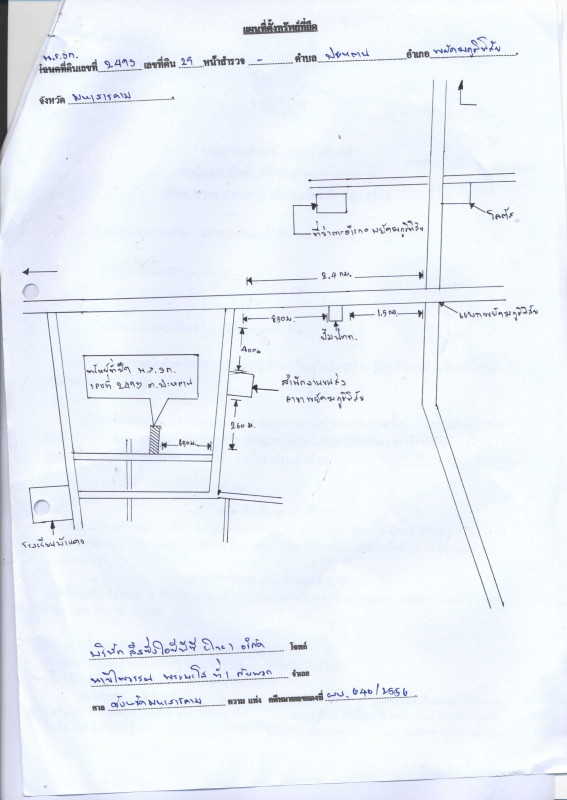 แผนที่ตั้งทรัพย์ที่ยึด
น.ส.3ก.
โฉนดที่ดินเลขที่ 2493 เลขที่ดิน 29 หน้าสำรวจ - ตำบล ปะหลาน อำเภอ พยัคฆภูมิพิสัย
จังหวัด มหาสารคาม
โลตัส
ที่ว่าการอำเภอ พยัคฆภูมิพิสัย
2.4 กม.
850 ม. 1.5 กม. แยกพยัคฆภูมิพิสัย
ปั๊มปตท.
400ม
ทรัพย์ที่ยึด น.ส.3ก.
เลขที่ 2493 ต.ปะหลาน
สำนักงานขนส่ง
สาขาพยัคฆภูมิพิสัย
260 ม.
850ม.
โรงเรียน
บริษัท โจทก์
ที่ 1 กับพวก จำเลย
ศาล จังหวัดมหาสารคาม ความ แพ่ง คดีหมายเลขแดงที่ ผบ. 640/2556